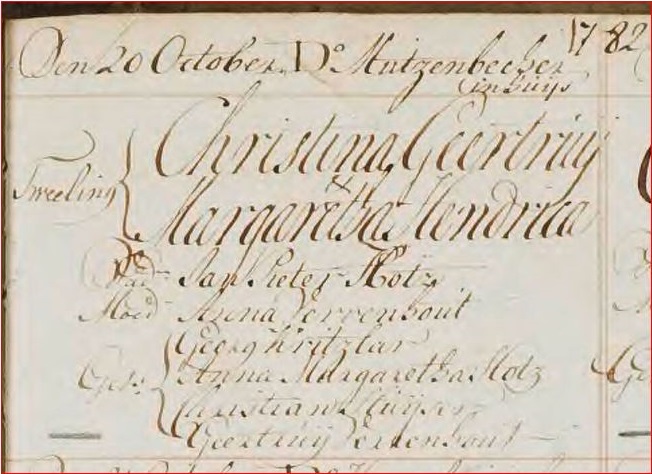 1782
Den 20 October. Do Mutzenbecher
in huijs
Christina Geertruij
Tweeling
Margaretha Hendrica
Vad Jan Pieter Hotz
Moed Anna Perrenbout
Georg Kritzlar
Get: Anna Margaretha Hotz
Christiaan Kuijser
Geertruij Perrenbout